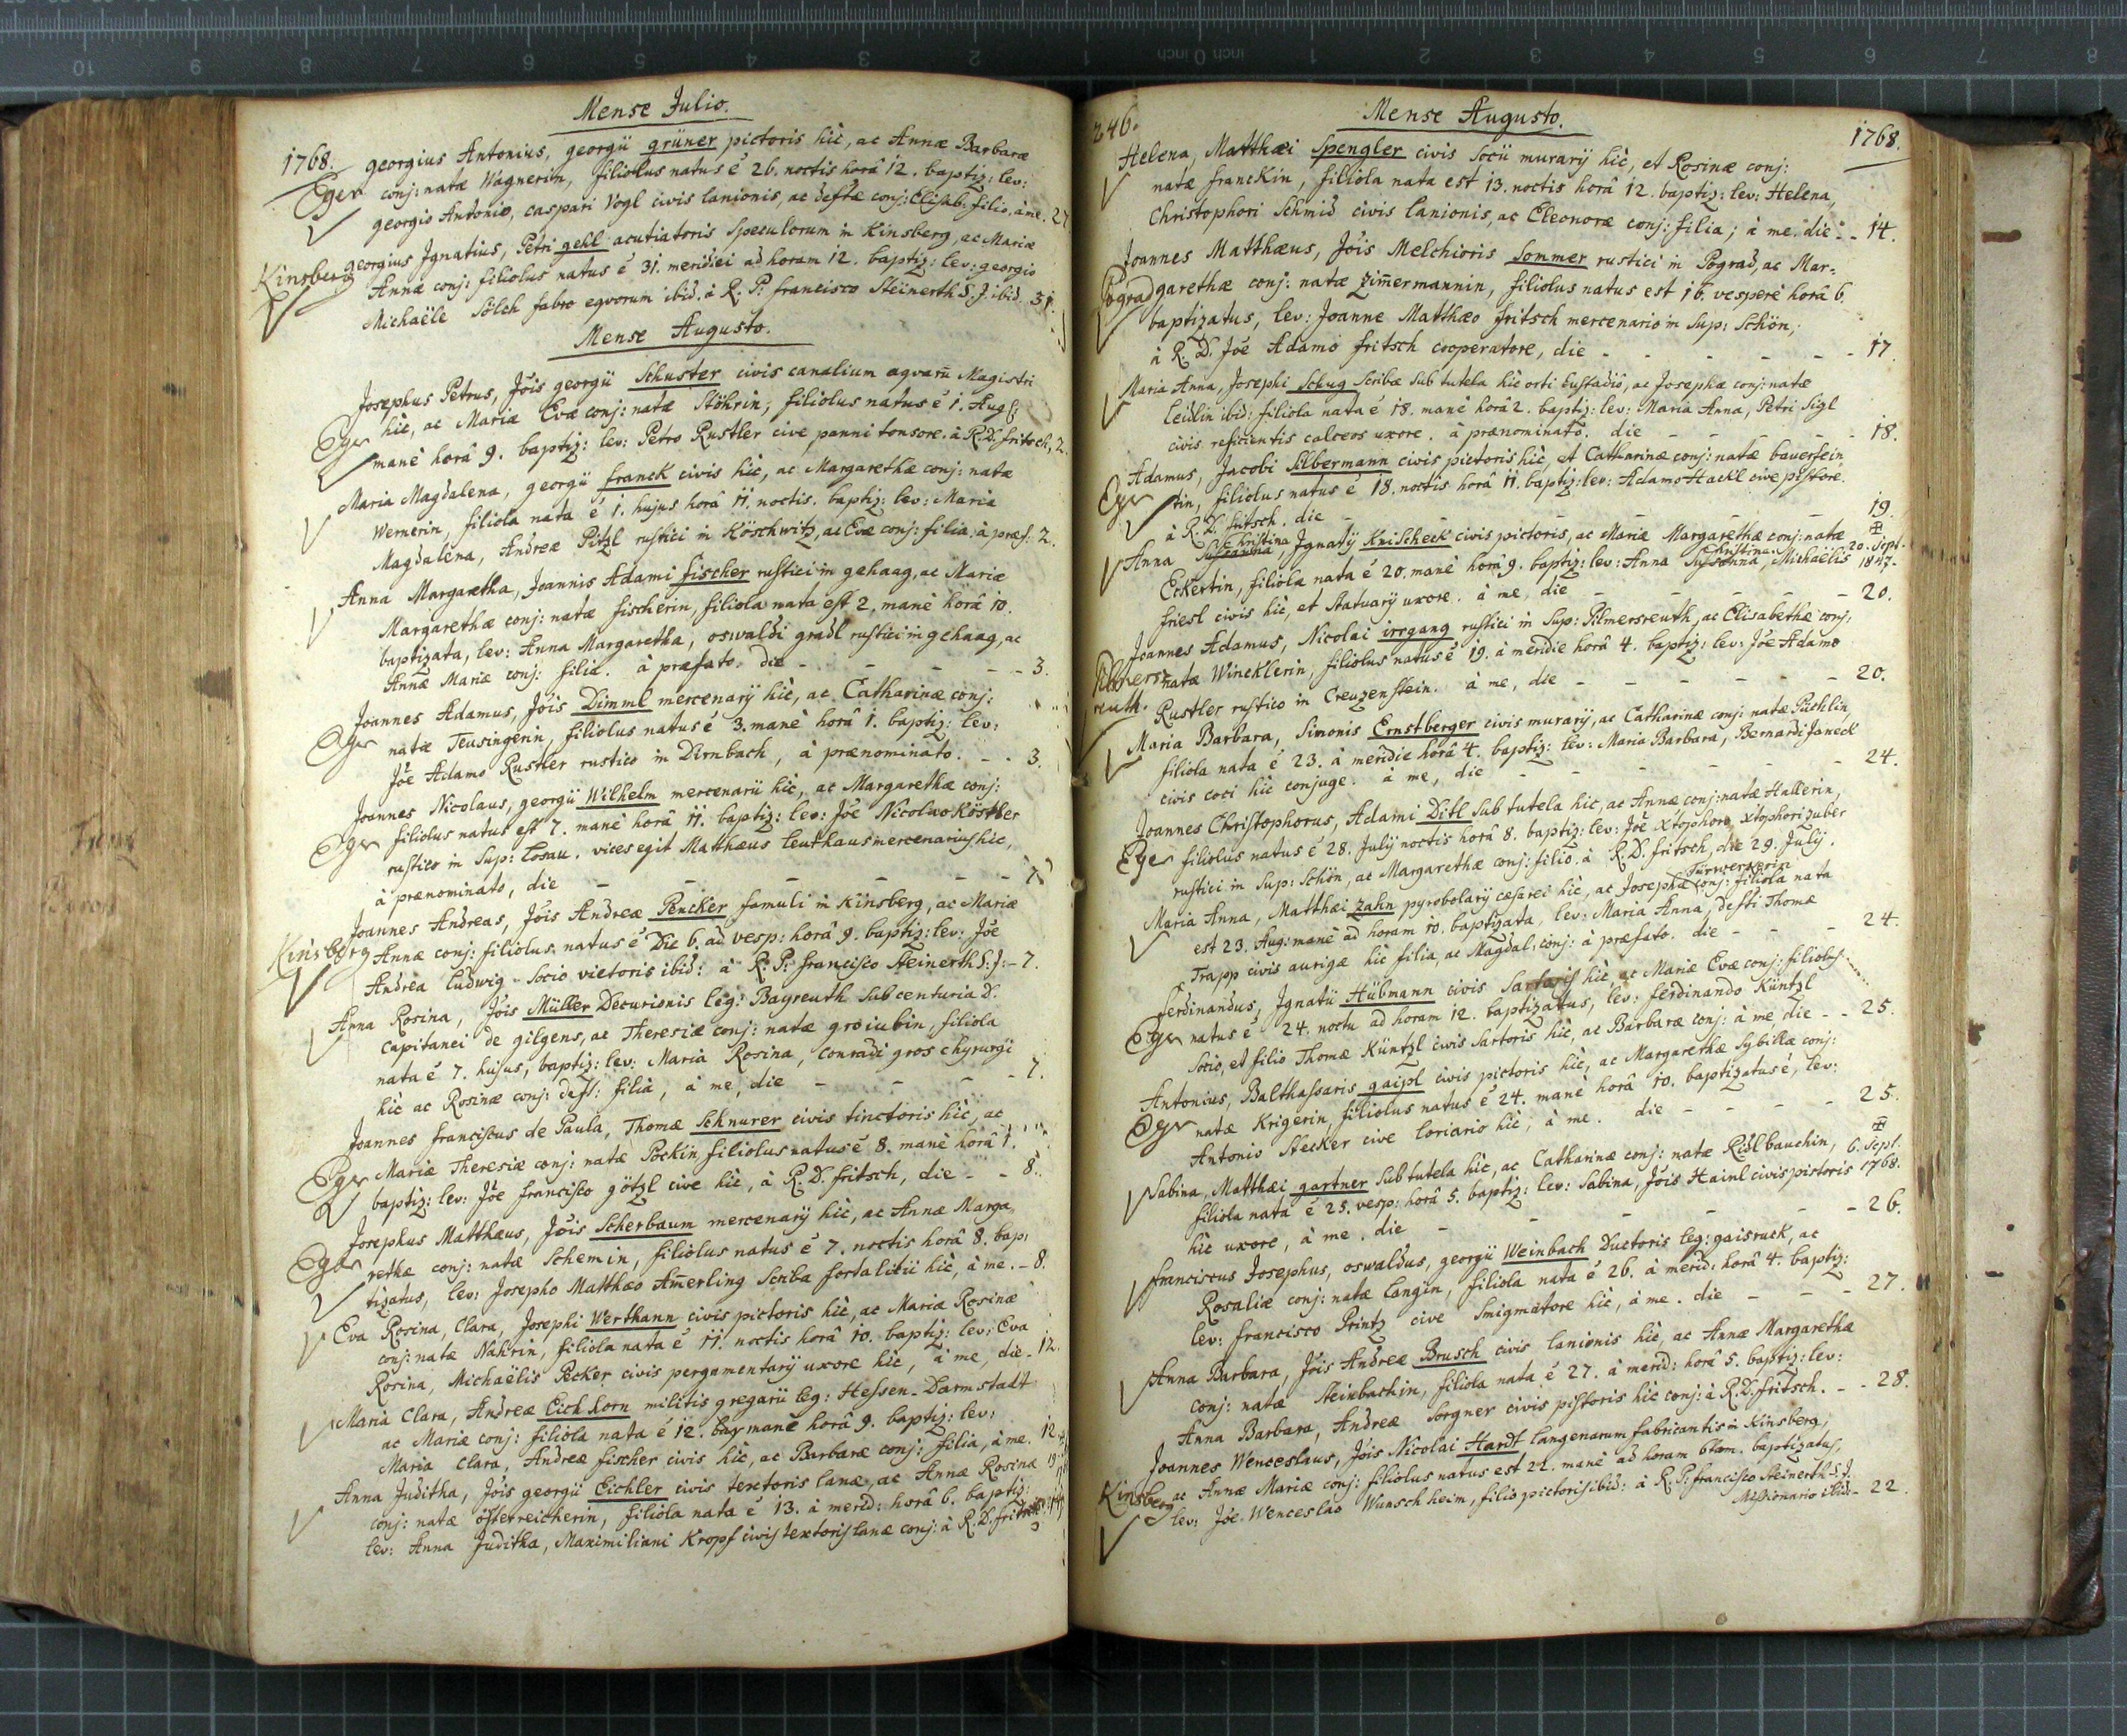 Mense Julio.
1768. georgius Antonius, georgii grüner pictoris hic, ac Annæ Barbaræ
Eger conj: natæ Wagnerin, filiolus natus ē 26. noctis horâ 12. baptiz: lev:
georgio Antonio, caspari Vogl civis lanionis, ac deftæ conj: Elisab: filio, à me. 27
Kinsberg georgius Ignatius, Petri gehl acutiatoris speculorum in Kinsberg, ac Mariæ
Annæ conj: filiolus natus ē 31. meridiei ad horam 12. baptiz: lev: georgio
Michaële Sölch fabro eqvorum ibid. à R. P: francisco Steinerth S: J. ibid. 31.
Mense Augusto.
Josephus Petrus, Jöis georgii Schuster civis canalium aqvarū Magistri
hic, ac Mariæ Evæ conj: natæ Stöhrin, filiolus natus ē 1. Augs:
Eger manè horâ 9. baptiz: lev: Petro Rustler cive, panni tonsore. à R. D. fritsch, 2.
Maria Magdalena, georgii franck civis hic, ac Margarethæ conj: natæ
Wernerin, filiola nata ē 1. hujus horâ 11. noctis. baptiz: lev: Maria
Magdalena, Andreæ Pitzl rustici in Köschwitz, ac Evæ conj: filia, à præf: 2.
Anna Margaretha, Joannis Adami fischer rustici in gehaag, ac Mariæ
Margarethæ conj: natæ fischerin, filiola nata est 2. manè horâ 10.
baptizata, lev: Anna Margaretha, oswaldi gradl rustici in gehaag, ac
Annæ Mariæ conj: filia. à præfato. die - - - - 3.
Joannes Adamus, Jöis Dimml mercenarÿ hic, ac Catharinæ conj:
Eger natæ Teusingerin, filiolus natus ē 3. manè horâ 1. baptiz: lev:
Jöe Adamo Rustler rustico in Dirnbach, à prænominato. - - 3.
Joannes Nicolaus, georgii Wilhelm mercenarii hic, ac Margarethæ conj:
Eger filiolus natus est 7. manè horâ 11. baptiz: lev: Jöe Nicolao Köstler
rustico in Sup: Losau. vices egit Matthæus leuthaus mercenarius hic,
à prænominato, die - - - - - 7.
Joannes Andreas, Jöis Andreæ Pencker famuli in Kinsberg, ac Mariæ
Kinsberg Annæ conj: filiolus natus ē Die 6. ad vesp: horâ 9. baptiz: lev: Jöe
Andrea Ludwig socio vietoris ibid: à R: P: francisco Steinerth S: J: - 7.
Anna Rosina, Jöis Müller Decurionis leg: Bayreuth sub centuria D.
Capitanei de gilgens, ac Theresiæ conj: natæ groiubin, filiola
nata ē 7. hujus, baptiz: lev: Maria Rosina, conradi gros chyrurgi
hic ac Rosinæ conj: deft: filia, à me, die - - - - 7.
Joannes franciscus de Paula, Thomæ Schnurer civis tinctoris hic, ac
Eger Mariæ Theresiæ conj: natæ Pöckin, filiolus natus ē 8. manè horâ 1.
baptiz: lev: Jöe francisco götzl cive hic, à R. D. fritsch, die - - 8.
Josephus Matthæus, Jöis Scherbaum mercenarÿ hic, ac Annæ Marga,
Eger rethæ conj: natæ Schemin, filiolus natus ē 7. noctis horâ 8. bap,
tizatus, lev: Josepho Matthæo Am̄erling Scriba fortalitii hic, à me. - 8.
Eva Rosina, Clara, Josephi Werthann civis pictoris hic, ac Mariæ Rosinæ
conj: natæ Nahrin, filiola nata ē 11. noctis horâ 10. baptiz: lev: Eva
Rosina, Michaëlis Pecker civis pergamentarÿ uxore hic, à me, die - 12.
Maria Clara, Andreæ Eichhorn militis gregarii leg: Hessen-Darmstadt
ac Mariæ conj: filiola nata ē 12. manè horâ 9. baptiz: lev:
Maria Clara, Andreæ fischer civis hic, ac Barbaræ conj: filia, à me. 12.
Anna Juditha, Jöis georgii Eichler civis textoris lanæ, ac Annæ Rosinæ
conj: natæ österreicherin, filiola nata ē 13. à merid: horâ 6. baptiz:
lev: Anna Juditha, Maximiliani Kropf civis textoris lanæ conj: à R. D. fritsch
246.
Mense Augusto.
1768.
Helena, Matthæi Spengler civis socii murarÿ hic, et Rosinæ conj:
natæ franckin, filiola nata est 13. noctis horâ 12. baptiz: lev: Helena,
Christophori Schmid civis lanionis, ac Eleonoræ conj: filia; à me. die - - 14.
Joannes Matthæus, Jöis Melchioris Sommer rustici in Pograd, ac Mar=
Pograd garethæ conj: natæ Zim̄ermannin, filiolus natus est 16. vesperè horâ 6.
baptizatus, lev: Joanne Matthæo fritsch mercenario in Sup: Schön,
à R. D. Jöe Adamo fritsch cooperatore, die - - - - - 17.
Maria Anna, Josephi Schug scribæ sub tutela hic orti Eustadio, ac Josephæ conj: natæ
Leidlin ibid: filiola nata ē 18. manè horâ 2. baptiz: lev: Maria Anna, Petri Sigl
civis reficientis calceos uxore. à prænominato. die - - - - 18.
Adamus, Jacobi Silbermann civis pictoris hic, et Catharinæ conj: natæ bauerfein
Eger tin, filiolus natus ē 18. noctis horâ 11. baptiz: lev: Adamo Hackl cive pistore.
à R. D. fritsch. die - - - - - 19.
Christina
Anna Susanna, Ignatÿ Knischeck civis pictoris, ac Mariæ Margarethæ conj: natæ
Christina
Eckertin, filiola nata ē 20. manè horâ 9. baptiz: lev: Anna Susanna, Michaëlis
20. Sept.
friesl civis hic, et statuarÿ uxore. à me, die - - - - 20.
Joannes Adamus, Nicolai irrgang rustici in Sup: Pilmersreuth, ac Elisabethæ conj,
natæ Wincklerin, filiolus natus ē 19. à meridie horâ 4. baptiz: lev: Jöe Adamo
reuth. Rustler rustico in Creuzenstein. à me, die - - - - 20.
Maria Barbara, Simonis Ernstberger civis murarÿ, ac Catharinæ conj: natæ Püchlin,
filiola nata ē 23. à meridie horâ 4. baptiz: lev: Maria Barbara, Bernardi Janeck
civis coci hic conjuge. à me, die - - - - 24.
Joannes Christophorus, Adami Ditl sub tutela hic, ac Annæ conj: natæ Hallerin,
Eger filiolus natus ē 28. Julÿ noctis horâ 8. baptiz: lev: Jöe Xtophoro, Xtophori zuber
rustici in Sup: Schön, ac Margarethæ conj: filio. à R. D. fritsch, die 29. Julÿ.
Türwerkerin
Maria Anna, Matthæi Zahn pyrobolarÿ cæsarei hic, ac Josephæ conj: filiola nata
est 23. Aug: manè ad horam 10. baptizata, lev: Maria Anna, defti Thomæ
Trapp civis aurigæ hic filia, ac Magdal: conj: à præfato. die - - - 24.
ferdinandus, Ignatii Hübmann civis Sartoris hic, ac Mariæ Evæ conj: filiolus
Eger natus ē 24. noctu ad horam 12. baptizatus, lev: ferdinando Küntzl
socio, et filio Thomæ Küntzl civis sartoris hic, ac Barbaræ conj: à me, die - - 25.
Antonius, Balthassaris gaipl civis pictoris hic, ac Margarethæ Sybillæ conj:
Eger natæ Krigerin, filiolus natus ē 24. manè horâ 10. baptizatus ē, lev:
Antonio Stecker cive loriario hic, à me. die - - - - 25.
Sabina, Matthæi gartner sub tutela hic, ac Catharinæ conj: natæ Ridlbauchin,
6. Sept.
1768.
filiola nata ē 25. vesp: horâ 5. baptiz: lev: Sabina, Jöis Hainl civis pistoris
hic uxore, à me. die - - - - - 26.
franciscus Josephus, oswaldus, georgii Weinbach Ductoris leg: gaisruck, ac
Rosaliæ conj: natæ Langin, filiola nata ē 26. à merid: horâ 4. baptiz:
lev: francisco Printz cive Smigmatore hic, à me. die - - - 27.
Anna Barbara, Jöis Andreæ Brusch civis lanionis hic, ac Annæ Margarethæ
conj: natæ Steinbachin, filiola nata ē 27. à merid: horâ 5. baptiz: lev:
Anna Barbara, Andreæ Sorgner civis pistoris hic conj: à R. D. fritsch. - - 28.
Joannes Wenceslaus, Jöis Nicolai Hardt langenarum fabricantis in Kinsberg,
Kinsberg ac Annæ Mariæ conj: filiolus natus est 22. manè ad horam 6tam. baptizatus,
lev: Jöe Wenceslao Wunschheim, filio pictoris ibid: à R. P: francisco Steinerth S. J.
Missionario ibid: - 22.